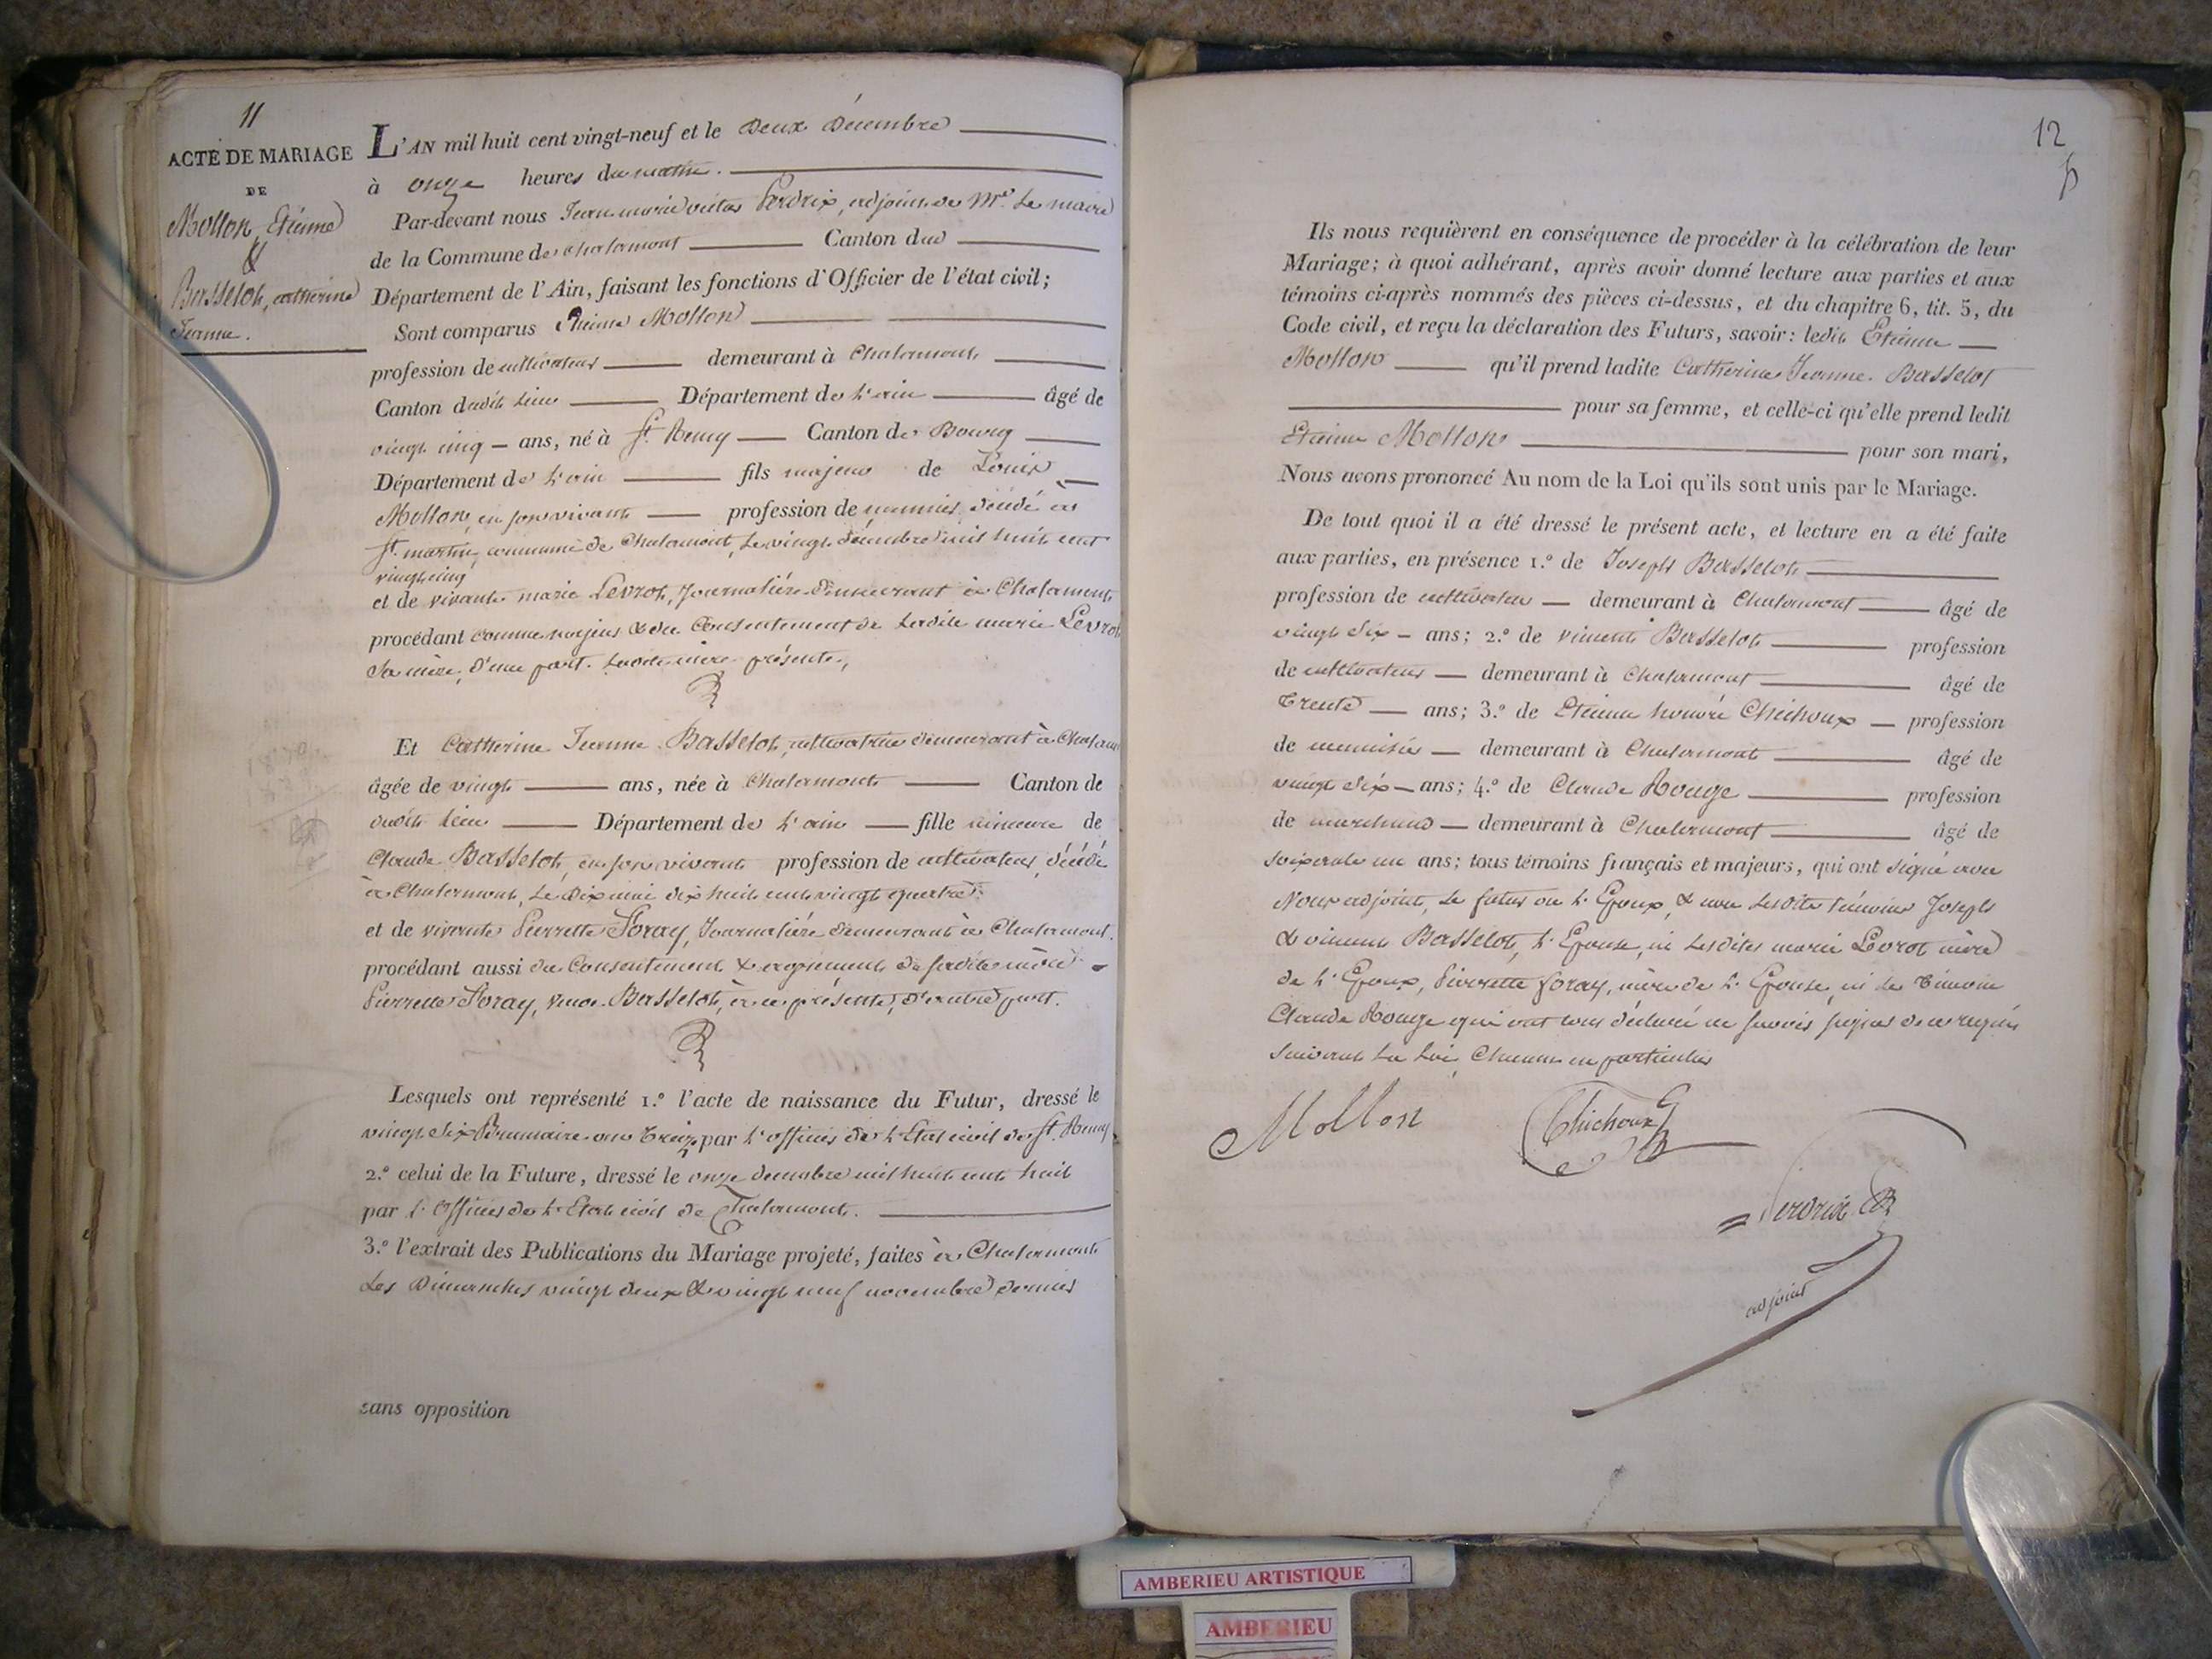 11
ACTE DE MARIAGE
DE
Mollon, Etienne
&
Basselot, catherine
Jeanne.
L'AN mil huit cent vingt-neuf et le deux décembre
à onze heures du matin.
Par-devant nous Jean marie victor Perdrix, adjoint de Mr. Le maire
de la Commune de chalamont Canton dud
Département de l'Ain, faisant les fonctions d'Officier de l'état civil;
Sont comparus Etienne Mollon
profession de cultivateur demeurant à Chalamont
Canton dudit lieu Département de l'ain âgé de
vingt cinq ans, né à St. Remy Canton de Bourg
Département de l'ain fils majeur de Louis
Mollon, en son vivant profession de meunier, décédé à
St. martin, commune de Chalamont, Le vingt décembre mil huit cent
vingt cinq
et de vivante marie Levrot, Journalière demeurant à Chalamont
procédant comme majeur & du Consentement de Ladite marie Levrot
Sa mère, d'une part. Ladite mère présente,
Et Catherine Jeanne Basselot, cultivatrice demeurant à Chalam
âgée de vingt ans, née à Chalamont Canton de
dudit lieu Département de l'ain fille mineure de
Claude Basselot, en son vivant profession de cultivateur, décédé
à Chalamont, Le dix mai dix huit cent vingt quatre.
et de vivante Pierrette Foray, Journalière demeurant à Chalamont.
procédant aussi du Consentement & agrément de sadite mère
Pierrette Foray, veuve Basselot, à ce présente, d'autre part.
Lesquels ont représenté 1.º l'acte de naissance du Futur, dressé le
vingt Six Brumaire an Treize par l'officier de l'Etat civil de St. Remy
2.º celui de la Future, dressé le onze decembre mil huit cent huit
par l'Officier de l'Etat civil de Chalamont.
3.º l'extrait des Publications du Mariage projeté, faites à Chalamont
Les Dimanches vingt deux & vingt neuf novembre dernier
sans opposition
12
Ils nous requièrent en conséquence de procéder à la célébration de leur
Mariage; à quoi adhérant, après avoir donné lecture aux parties et aux
témoins ci-après nommés des pièces ci-dessus, et du chapitre 6, tit. 5, du
Code civil, et reçu la déclaration des Futurs, savoir: ledit Etienne
Mollon qu'il prend ladite Catherine Jeanne Basselot
pour sa femme, et celle-ci qu'elle prend ledit
Etienne Mollon pour son mari,
Nous avons prononcé Au nom de la Loi qu'ils sont unis par le Mariage.
De tout quoi il a été dressé le présent acte, et lecture en a été faite
aux parties, en présence 1.º de Joseph Basselot
profession de cultivateur demeurant à Chalamont âgé de
vingt Six ans; 2.º de vincent Basselot profession
de cultivateur demeurant à Chalamont âgé de
Trente ans; 3.º de Etienne honoré Chichoux profession
de menuisier demeurant à Chalamont âgé de
vingt Six ans; 4.º de Claude Rouge profession
de marchand demeurant à Chalamont âgé de
soixante un ans; tous témoins français et majeurs, qui ont signé avec
Nous adjoint, Le futur ou l'Epoux, & non Lesdits témoins Joseph
& vincent Basselot, l'Epouse, ni Lesdites marie Levrot mère
de l'Epoux, Pierrette foray, mère de l'Epouse, ni le Témoin
Claude Rouge qui ont tous déclaré ne savoir signer de ce requis
suivant La Loi, Chacun en particulier
Mollon
Chichoux
Perdrix
adjoint
AMBERIEU ARTISTIQUE
AMBERIEU